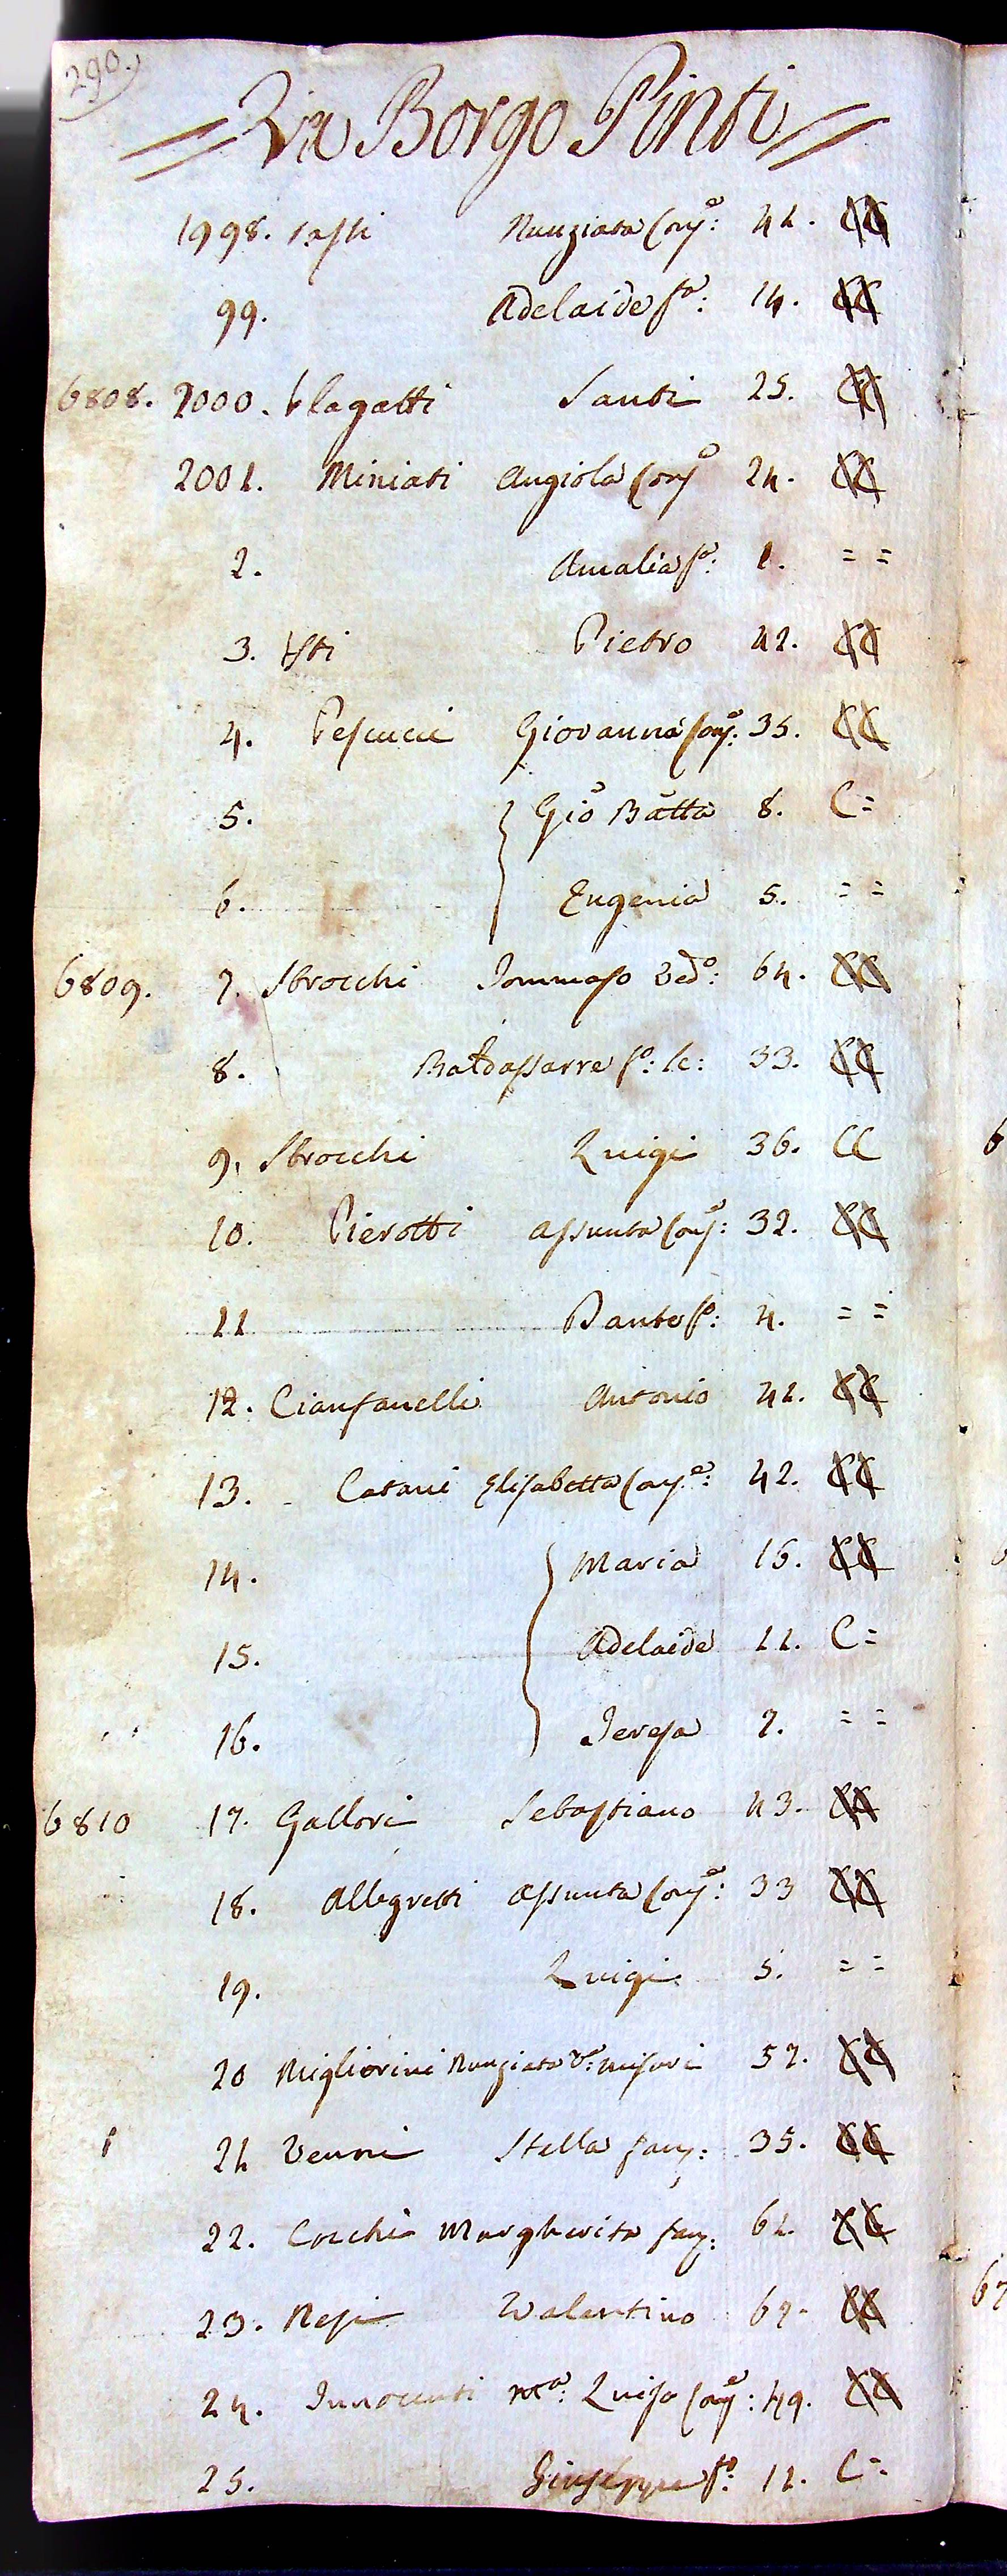 290.
= Via Borgo Pinti =
1998. Sassi Nunziata Conj.e: 41. CC
99. Adelaide f.a: 14. CC
6808. 2000. Flagatti Santi 25. CC
2001. Miniati Angiola Conj.e 24. CC
2. Amalia f.a: 1. = =
3. Pietro 42. CC
4. Pescucci Giovanna Conj.e: 35. CC
5. Gio Batta 8. C =
6. Eugenia 5. = =
6809. 7. Sbrocchi Tommaso Ved.o: 64. CC
8. Baldassarre f.o: le: 33. CC
9. Sbrocchi Luigi 36. CC
10. Pierotti Assunta Conj.e: 32. CC
11 Dante f.o: 4. = =
12. Cianfanelli Antonio 41. CC
13. Catani Elisabetta Conj.e: 42. CC
14. Maria 16. CC
15. Adelaide 11. C =
16. Teresa 7. = =
6810 17. Gallori Sebastiano 43. CC
18. Allegretti Assunta Conj.e: 33 CC
19. Luigi 5. = =
20 Migliorini Nunziata v.a: Misuri 57. CC
21 Venni Stella fanz: 35. CC
22. Cocchi Margherita fanz: 61. CC
23. Nesi Valentino 67. CC
24. Innocenti M.a: Luisa Conj.e: 49. CC
25. Giuseppe f.o: 11. C =